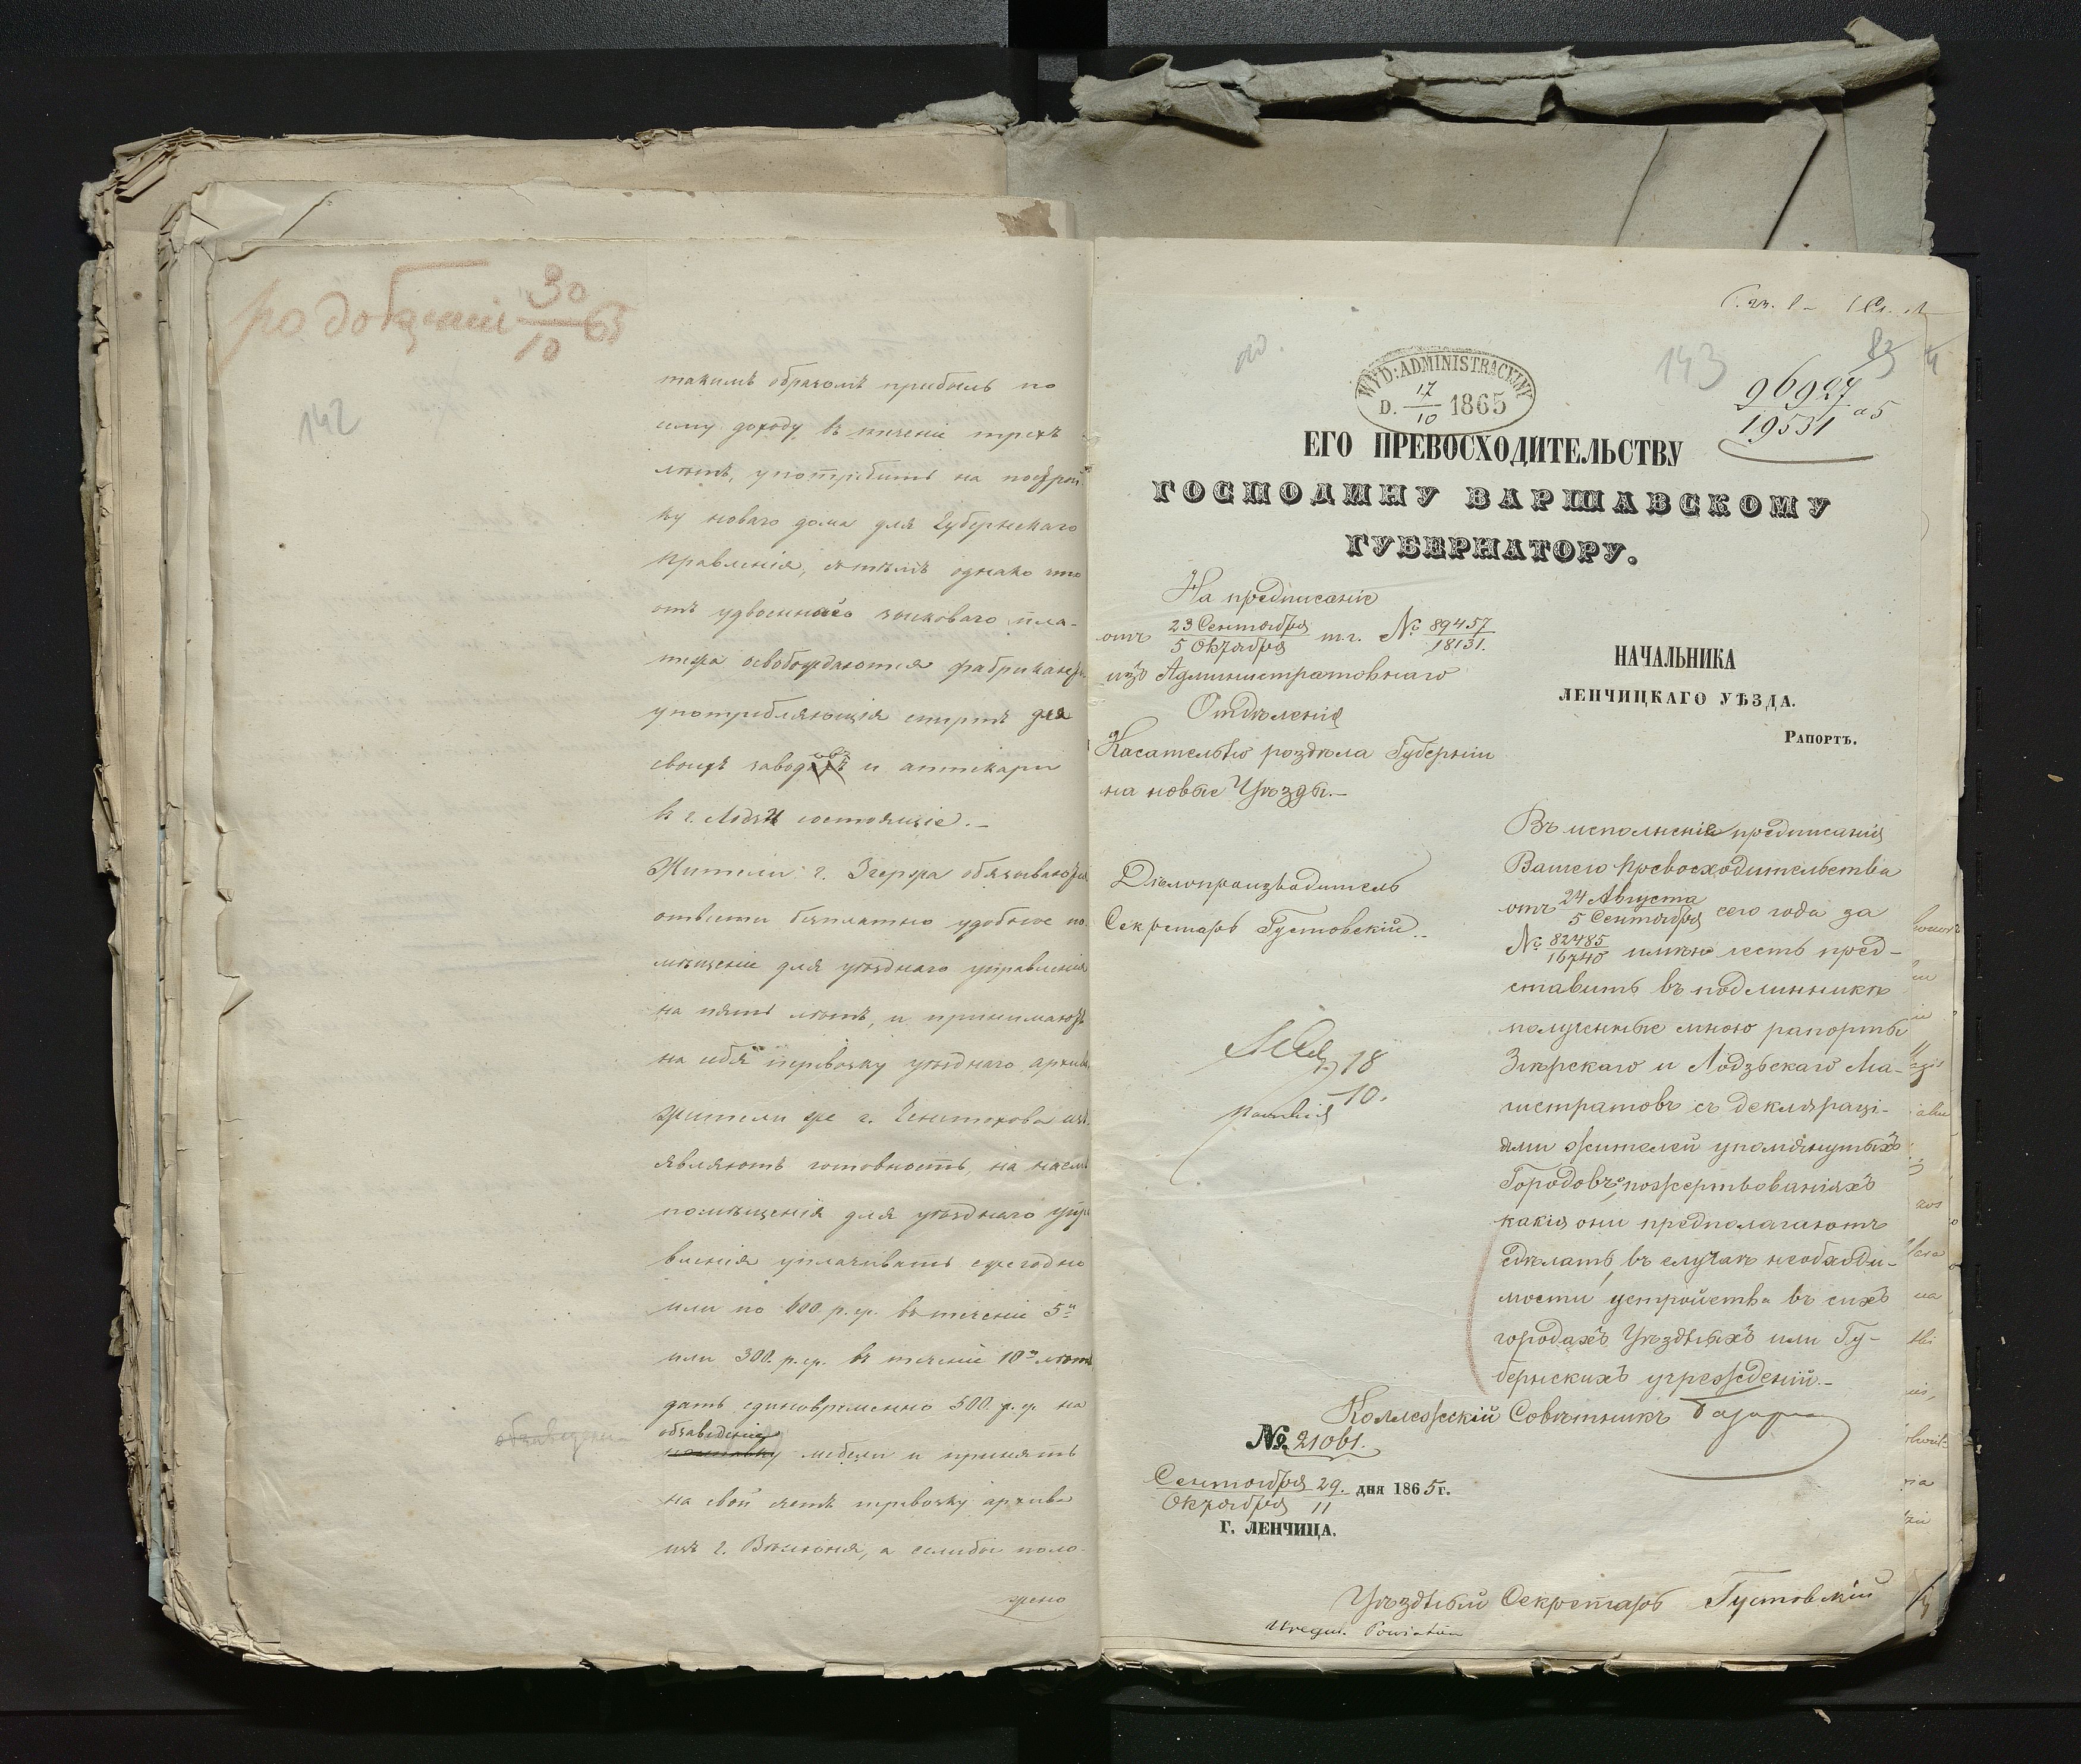 30
10 65
142
такимъ образомъ прибыль по
сему доходу въ теченіи трехъ
лѣтъ, употребить на построй
ку новаго дома для Губернскаго
Правленія, съ тѣмъ однако что
отъ удвоеннаго коньковаго пла-
тежа освобождаются фабриканты
употребляющія спиртъ для
своихъ заводовъ и аптекари
въ г. Лодзи состоящіе.-
Жители г. Згержа обязываются
отвести безплатно удобное по
мѣщеніе для уѣзднаго управленія
на пять лѣтъ, и принимаютъ
на себя перевозку уѣзднаго архива
Жители же г. Ченстохова изъ
являютъ готовность, на наемъ
помѣщенія для уѣзднаго упра
вленія уплачивать ежегодно
или по 600 р. ср. въ теченіе 5и
или 300. р. ср. въ теченіе 10и лѣтъ
дать единовременно 500. р. ср. на
обзаведеніе
обзаведеніе мебели и принять
на свой счетъ перевозку архива
изъ г. Вѣлюня, а если бы поло-
жено
143
83
WYD: ADMINISTRACYJNY
D. 17/10 1865
96927
19531 a5
ЕГО ПРЕВОСХОДИТЕЛЬСТВУ
ГОСПОДИНУ ВАРШАВСКОМУ
ГУБЕРНАТОРУ.
На предписаніе
отъ 23 Сентября / 5 Октября т.г. № 89457 / 18131.
изъ Административнаго
Отдѣленія
Касательно роздѣла Губерніи
на новые Уѣзды.-
Дѣлопроизводитель
Секретарь Густовскій.
18
10.
НАЧАЛЬНИКА
ЛЕНЧИЦКАГО УѢЗДА.
РАПОРТЪ.
Въ исполненіе предписанія
Вашего Превосходительства
отъ 24 Августа / 5 Сентября сего года за
№ 82485 / 16740 имѣю честь пред-
ставить въ подлинникѣ
полученные мною рапорты
Згѣрскаго и Лодзьскаго Ма-
гистратовъ съ деклараці-
ями жителей упомянутыхъ
Городовъ, о пожертвованіяхъ
какія они предполагаютъ
сдѣлать, въ случаѣ необходи-
мости устройства въ сихъ
городахъ Уѣздныхъ или Гу-
бернскихъ учрежденій.-
Коллежскій Совѣтникъ
№ 21061.
Сентября 29. / Октября 11 дня 1865 г.
Г. ЛЕНЧИЦА.
Уѣздный Секретарь Густовскій
Powiatów